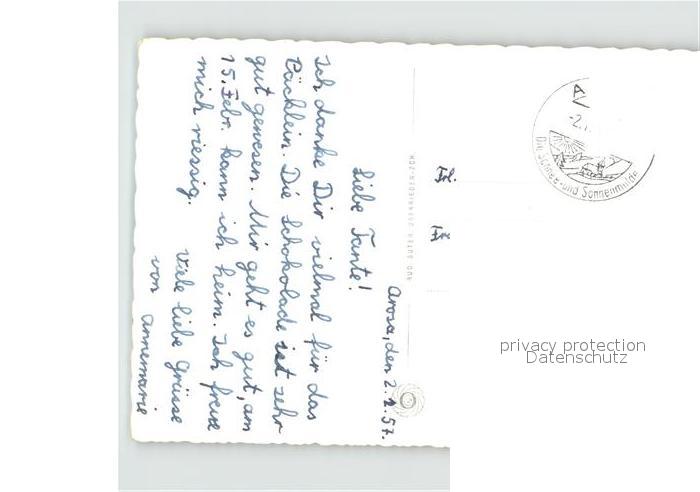 Arosa, den 2. 2. 57.
Liebe Tante!
Ich danke Dir vielmal für das
Päcklein. Die Schokolade ist sehr
gut gewesen. Mir geht es gut, am
15. Febr. kann ich heim. Ich freue
mich riessig.
Viele liebe Grüsse
von Annemarie
A
-2.
Die Schnee- und Sonnenmulde
privacy protection
Datenschutz